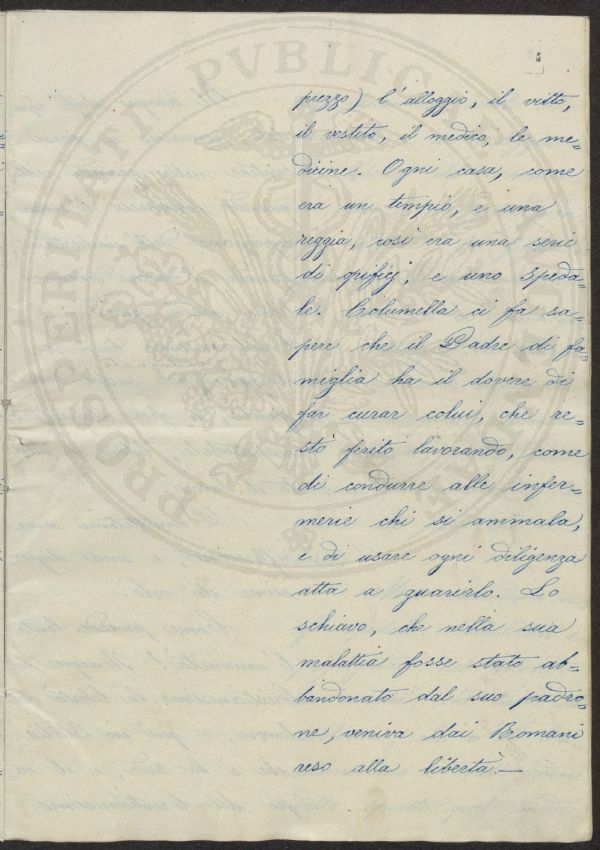 PROSPERITATI PVBLIC
prezzo) l'alloggio, il vitto,
il vestito, il medico, le me=
dicine. Ogni casa, come
era un tempio, e una
reggia, così era una serie
di opificj, e uno Speda-
le. Columella ci fa sa-
pere che il Padre di fa=
miglia ha il dovere di
far curar colui, che re=
stò ferito lavorando, come
di condurre alle infer=
merie chi si ammala,
e di usare ogni diligenza
atta a guarirlo. Lo
schiavo, che nella sua
malattia fosse stato ab=
bandonato dal suo padro=
ne, veniva dai Romani
reso alla libertà.—